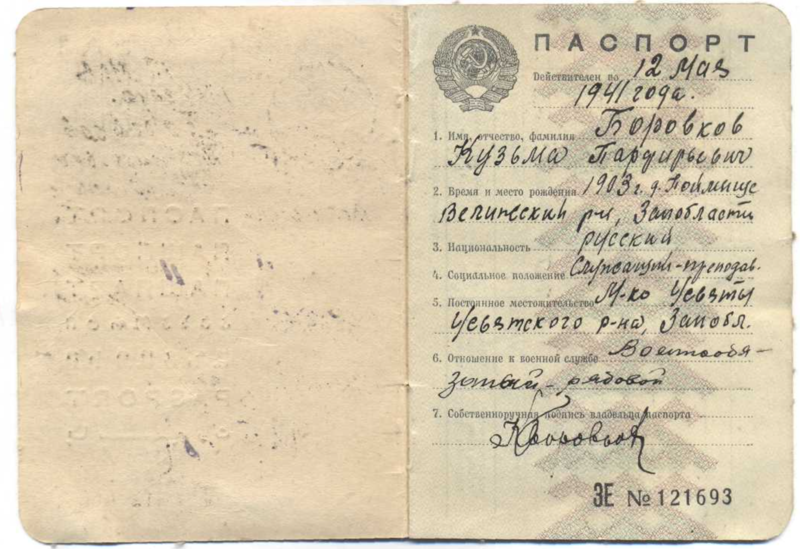 ПАСПОРТ
Действителен по 12 Мая
1941 года.
1. Имя, отчество, фамилия Боровков
Кузьма
2. Время и место рождения 1903 г. д. Поймище
Велижский р-н, Запобласти
3. Национальность русский
4. Социальное положение Служащий-преподав.
5. Постоянное местожительство М-ко Усвяты
Усвятского р-на, Запобл.
6. Отношение к военной службе Военнообя-
занный-рядовой
7. Собственноручная подпись владельца паспорта
ЗЕ № 121693